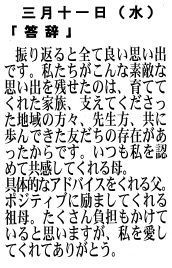 三月十一日（水）
『答辞』
振り返ると全て良い思い出
です。私たちがこんな素敵な
思い出を残せたのは、育てて
くれた家族、支えてくださっ
た地域の方々、先生方、共に
歩んできた友だちの存在があ
ったからです。いつも私を認
めて共感してくれる母。
具体的なアドバイスをくれる父。
ポジティブに励ましてくれる
祖母。たくさん負担もかけて
いると思いますが、私を愛し
てくれてありがとう。